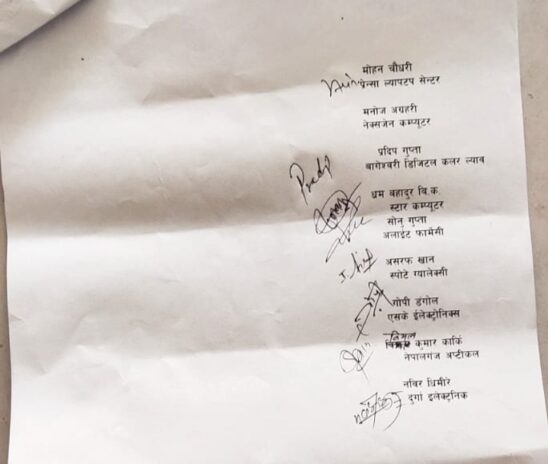 मोहन चौधरी
प्रेन्सा ल्यापटप सेन्टर
मनोज अग्रहरी
नेक्सजेन कम्प्यूटर
प्रदिप गुप्ता
बागेश्वरी डिजिटल कलर ल्याव
Pradip
धम बहादुर वि.क.
स्टार कम्प्युटर
सोनु गुप्ता
अलाईट फार्मेसी
असरफ खान
स्पोटे ग्यालेक्सी
गोपी डंगोल
एसके ईलेक्ट्रोनिक्स
कुमार कार्कि
नेपालगंज अप्टीकल
नविर घिमीरे
दुर्गा इलेक्ट्रनिक